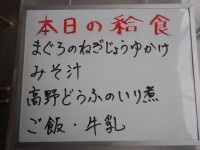 本日の給食
まぐろのねぎじょうゆかけ
みそ汁
高野どうふのいり煮
ご飯・牛乳